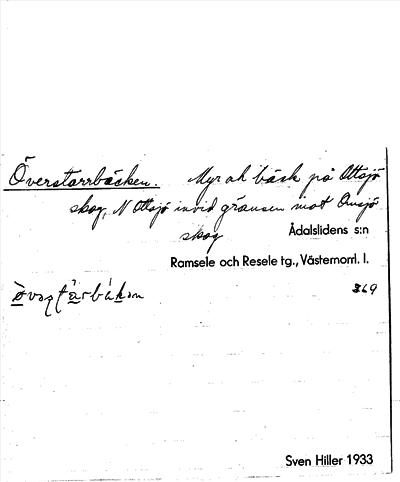 Överstarrbäcken. Myr ok bäck på Ottsjö
skog, N Ottsjö invid gränsen mot Omsjö
skog
Ådalslidens s:n
Ramsele och Resele tg., Västernorrl. l.
369
Sven Hiller 1933